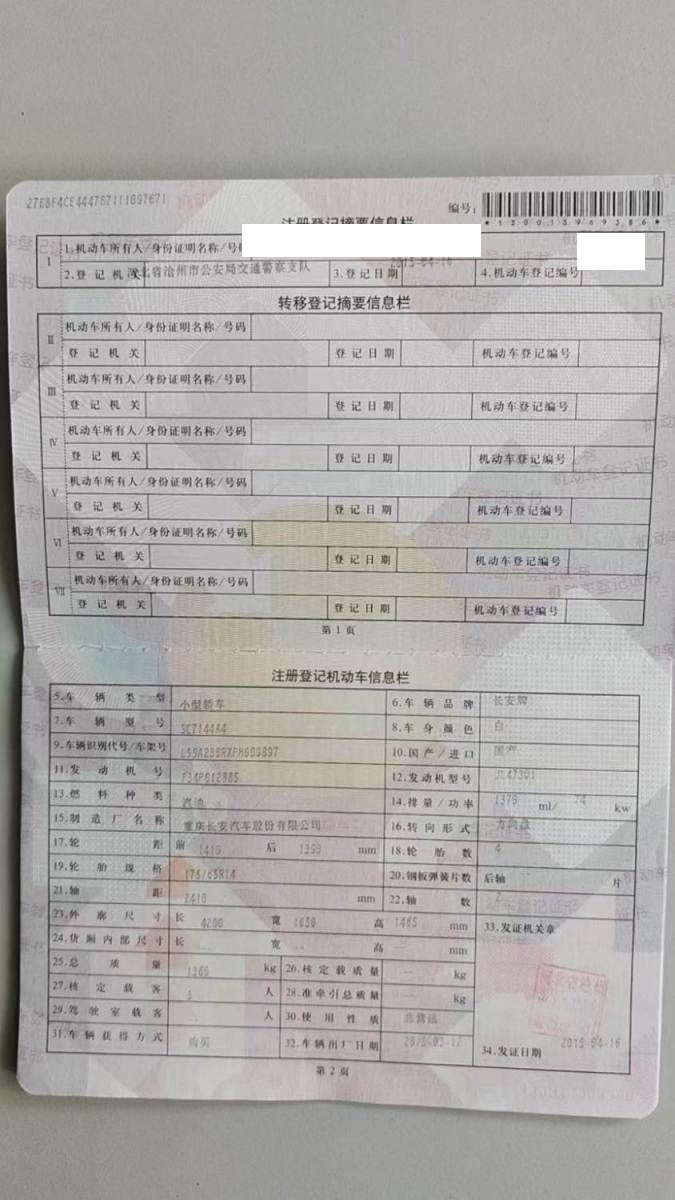 编号:
*130013969386*
注册登记摘要信息栏
Ⅰ 1.机动车所有人/身份证明名称/号码
2.登记机关 河北省沧州市公安局交通警察支队 3.登记日期 2015-04-16 4.机动车登记编号
转移登记摘要信息栏
Ⅱ 机动车所有人/身份证明名称/号码
登记机关 登记日期 机动车登记编号
Ⅲ 机动车所有人/身份证明名称/号码
登记机关 登记日期 机动车登记编号
Ⅳ 机动车所有人/身份证明名称/号码
登记机关 登记日期 机动车登记编号
Ⅴ 机动车所有人/身份证明名称/号码
登记机关 登记日期 机动车登记编号
Ⅵ 机动车所有人/身份证明名称/号码
登记机关 登记日期 机动车登记编号
Ⅶ 机动车所有人/身份证明名称/号码
登记机关 登记日期 机动车登记编号
第1页
注册登记机动车信息栏
5.车辆类型 小型轿车 6.车辆品牌 长安牌
7.车辆型号 8.车身颜色 白
9.车辆识别代号/车架号 10.国产/进口 国产
11.发动机号 12.发动机型号
13.燃料种类 汽油 14.排量/功率 ml/ 74 kw
15.制造厂名称 重庆长安汽车股份有限公司 16.转向形式 方向盘
17.轮距 前 1410 后 mm 18.轮胎数 4
19.轮胎规格 175/65R14 20.钢板弹簧片数 后轴 片
21.轴距 2410 mm 22.轴数
23.外廓尺寸 长 4200 宽 1650 高 1465 mm 33.发证机关章
24.货厢内部尺寸 长 宽 高 mm
25.总质量 kg 26.核定载质量 -- kg
27.核定载客 5 人 28.准牵引总质量 -- kg
29.驾驶室载客 人 30.使用性质 非营运
31.车辆获得方式 购买 32.车辆出厂日期 34.发证日期 2015-04-16
第2页